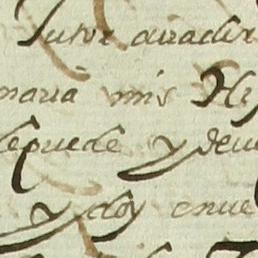 Tutor añadir
maria mis Hi
sepuede y deve
y doy enve